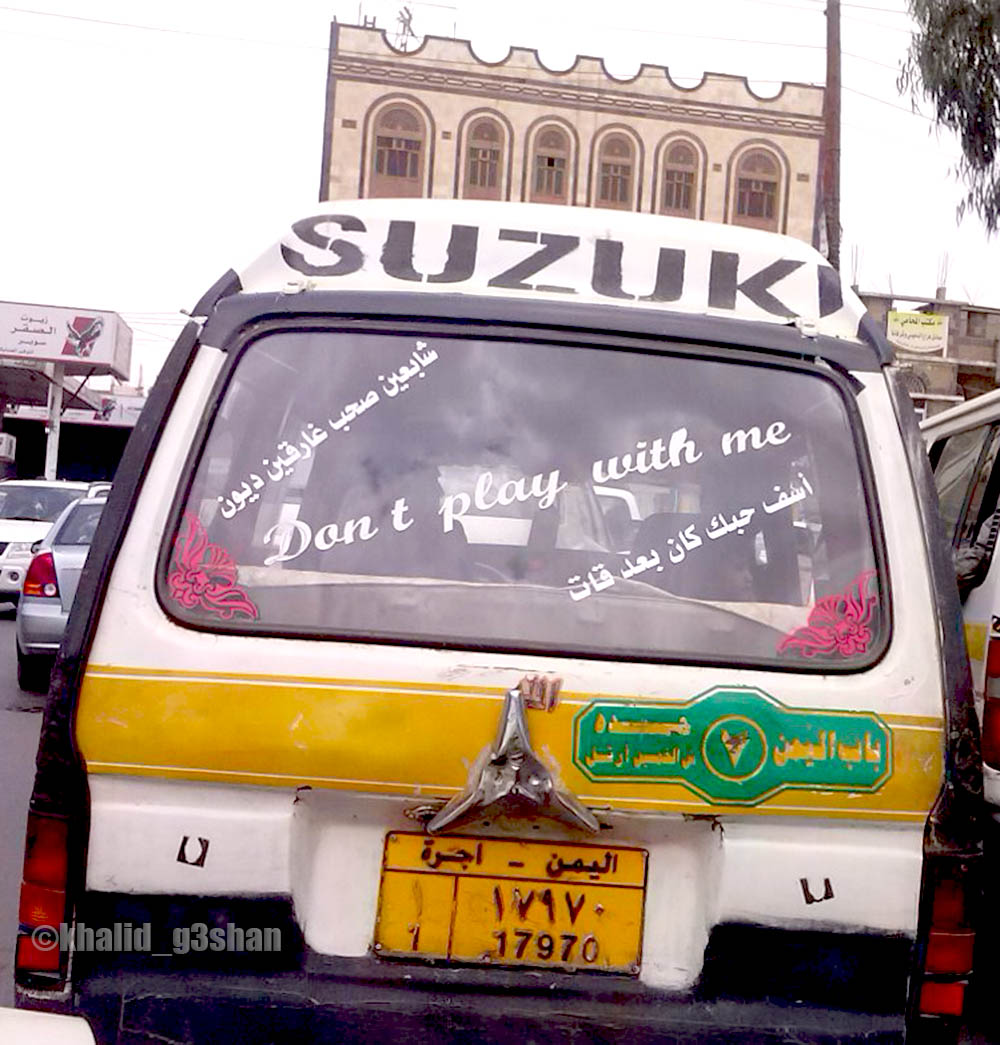 SUZUKI
زيوت
الصقر
سوبر
مكتب المحامي
شابعين صحب غارقين ديون
Don't play with me
أشف حبك كان بعد قات
باب اليمن
حده
٧
اليمن - اجرة
١ ١٧٩٧٠
1 17970
©khalid_g3shan